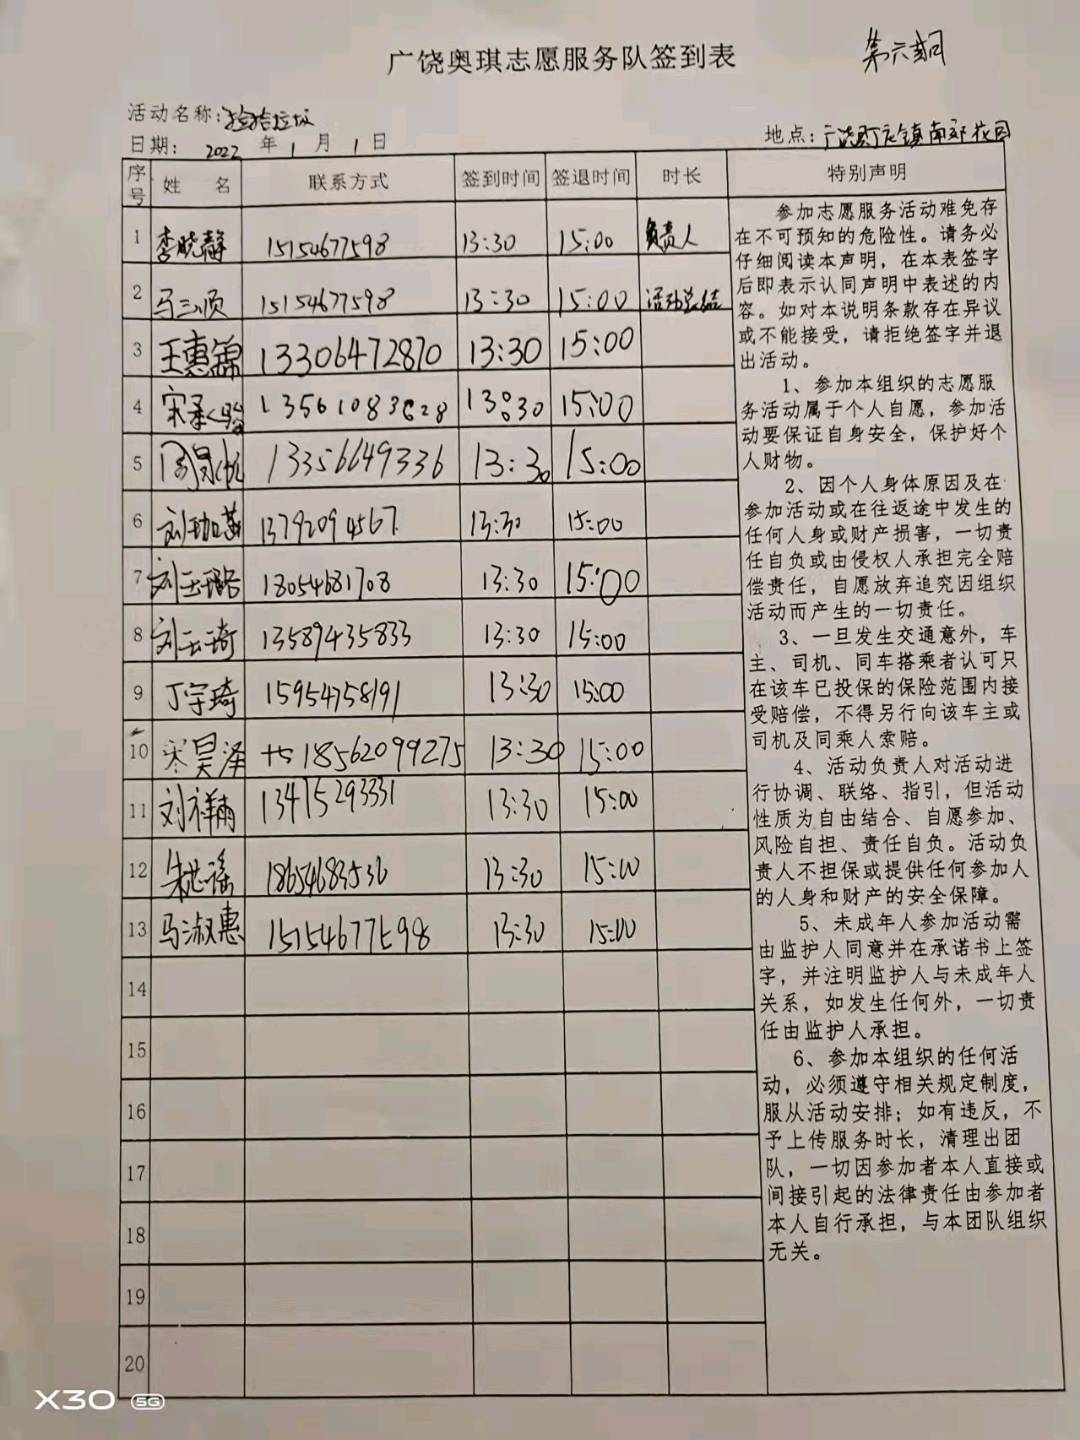 广饶奥琪志愿服务队签到表
第六期
活动名称:捡拾垃圾
日期: 2022 年 1 月 1 日
地点:广饶县丁庄镇南郊花园
序号 姓 名 联系方式 签到时间 签退时间 时长 特别声明
1 李晓静 15154677598 13:30 15:00 负责人
2 马三顺 15154677598 13:30 15:00 活动总结
3 王惠锦 13306472870 13:30 15:00
4 13561083628 13:30 15:00
5 13356649336 13:30 15:00
6 13792094567 13:30 15:00
7 刘玉璐 18054681708 13:30 15:00
8 刘云琦 13589435833 13:30 15:00
9 丁宇琦 15954758191 13:30 15:00
10 宋昊泽 18562099275 13:30 15:00
11 刘祥雨 13475293331 13:30 15:00
12 18654683536 13:30 15:00
13 马淑惠 15154677598 13:30 15:00
14
15
16
17
18
19
20
参加志愿服务活动难免存
在不可预知的危险性。请务必
仔细阅读本声明，在本表签字
后即表示认同声明中表述的内
容。如对本说明条款存在异议
或不能接受，请拒绝签字并退
出活动。
1、参加本组织的志愿服
务活动属于个人自愿，参加活
动要保证自身安全，保护好个
人财物。
2、因个人身体原因及在
参加活动或在往返途中发生的
任何人身或财产损害，一切责
任自负或由侵权人承担完全赔
偿责任，自愿放弃追究因组织
活动而产生的一切责任。
3、一旦发生交通意外，车
主、司机、同车搭乘者认可只
在该车已投保的保险范围内接
受赔偿，不得另行向该车主或
司机及同乘人索赔。
4、活动负责人对活动进
行协调、联络、指引，但活动
性质为自由结合、自愿参加、
风险自担、责任自负。活动负
责人不担保或提供任何参加人
的人身和财产的安全保障。
5、未成年人参加活动需
由监护人同意并在承诺书上签
字，并注明监护人与未成年人
关系，如发生任何外，一切责
任由监护人承担。
6、参加本组织的任何活
动，必须遵守相关规定制度，
服从活动安排；如有违反，不
予上传服务时长，清理出团
队，一切因参加者本人直接或
间接引起的法律责任由参加者
本人自行承担，与本团队组织
无关。
X30 5G